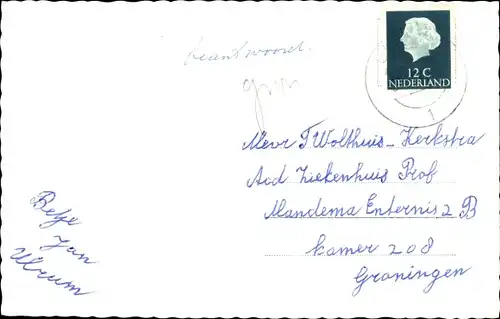 beantwoord.
12 C
NEDERLAND
1
Mevr T Wolthuis-Kerkstra
Acd Ziekenhuis Prof
Mandema Enternis 2 B
kamer 208
Groningen
Betje
Jan
Ulrum